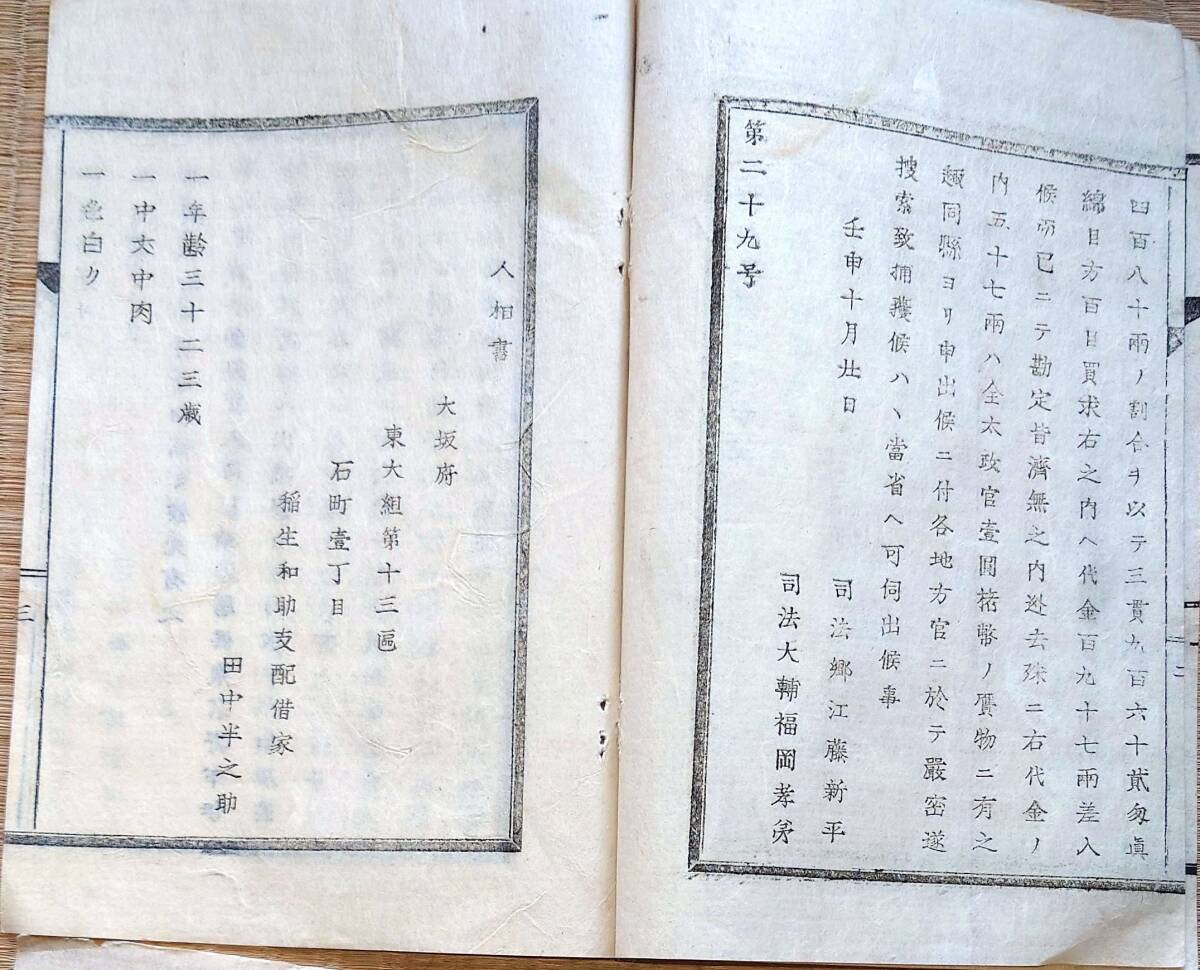 四百八十兩ノ割合ヲ以テ三貫九百六十貳匁眞
綿目方百目買求右之内ヘ代金百九十七兩差入
候而已ニテ勘定皆濟無之内迯去殊ニ右代金ノ
内五十七兩ハ全太政官壹圓楮幣ノ贋物ニ有之
趣同縣ヨリ申出候ニ付各地方官ニ於テ嚴密遂
搜索致捕獲候ハヽ當省ヘ可伺出候事
壬申十月廿日
司法卿江藤新平
司法大輔福岡孝弟
第二十九号
二
人相書
大坂府
東大組第十三區
石町壹丁目
稲生和助支配借家
田中半之助
一年齡三十二三歳
一中丈中肉
一色白ク
三